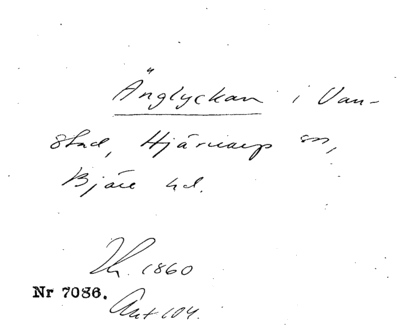 Änglyckan i Van-
stad, Hjärnarp sn,
Bjäre hd.
Th. 1860
Nr 7086.
Ant 104.